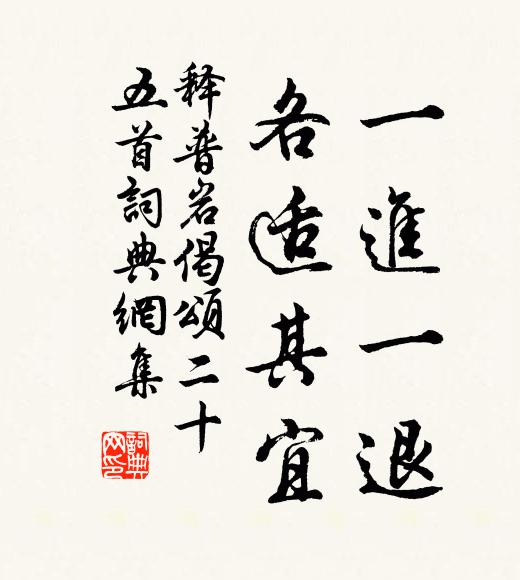 一進一退
各适其宜
释普岩偈頌二十
五首詞典網集
詞典网印